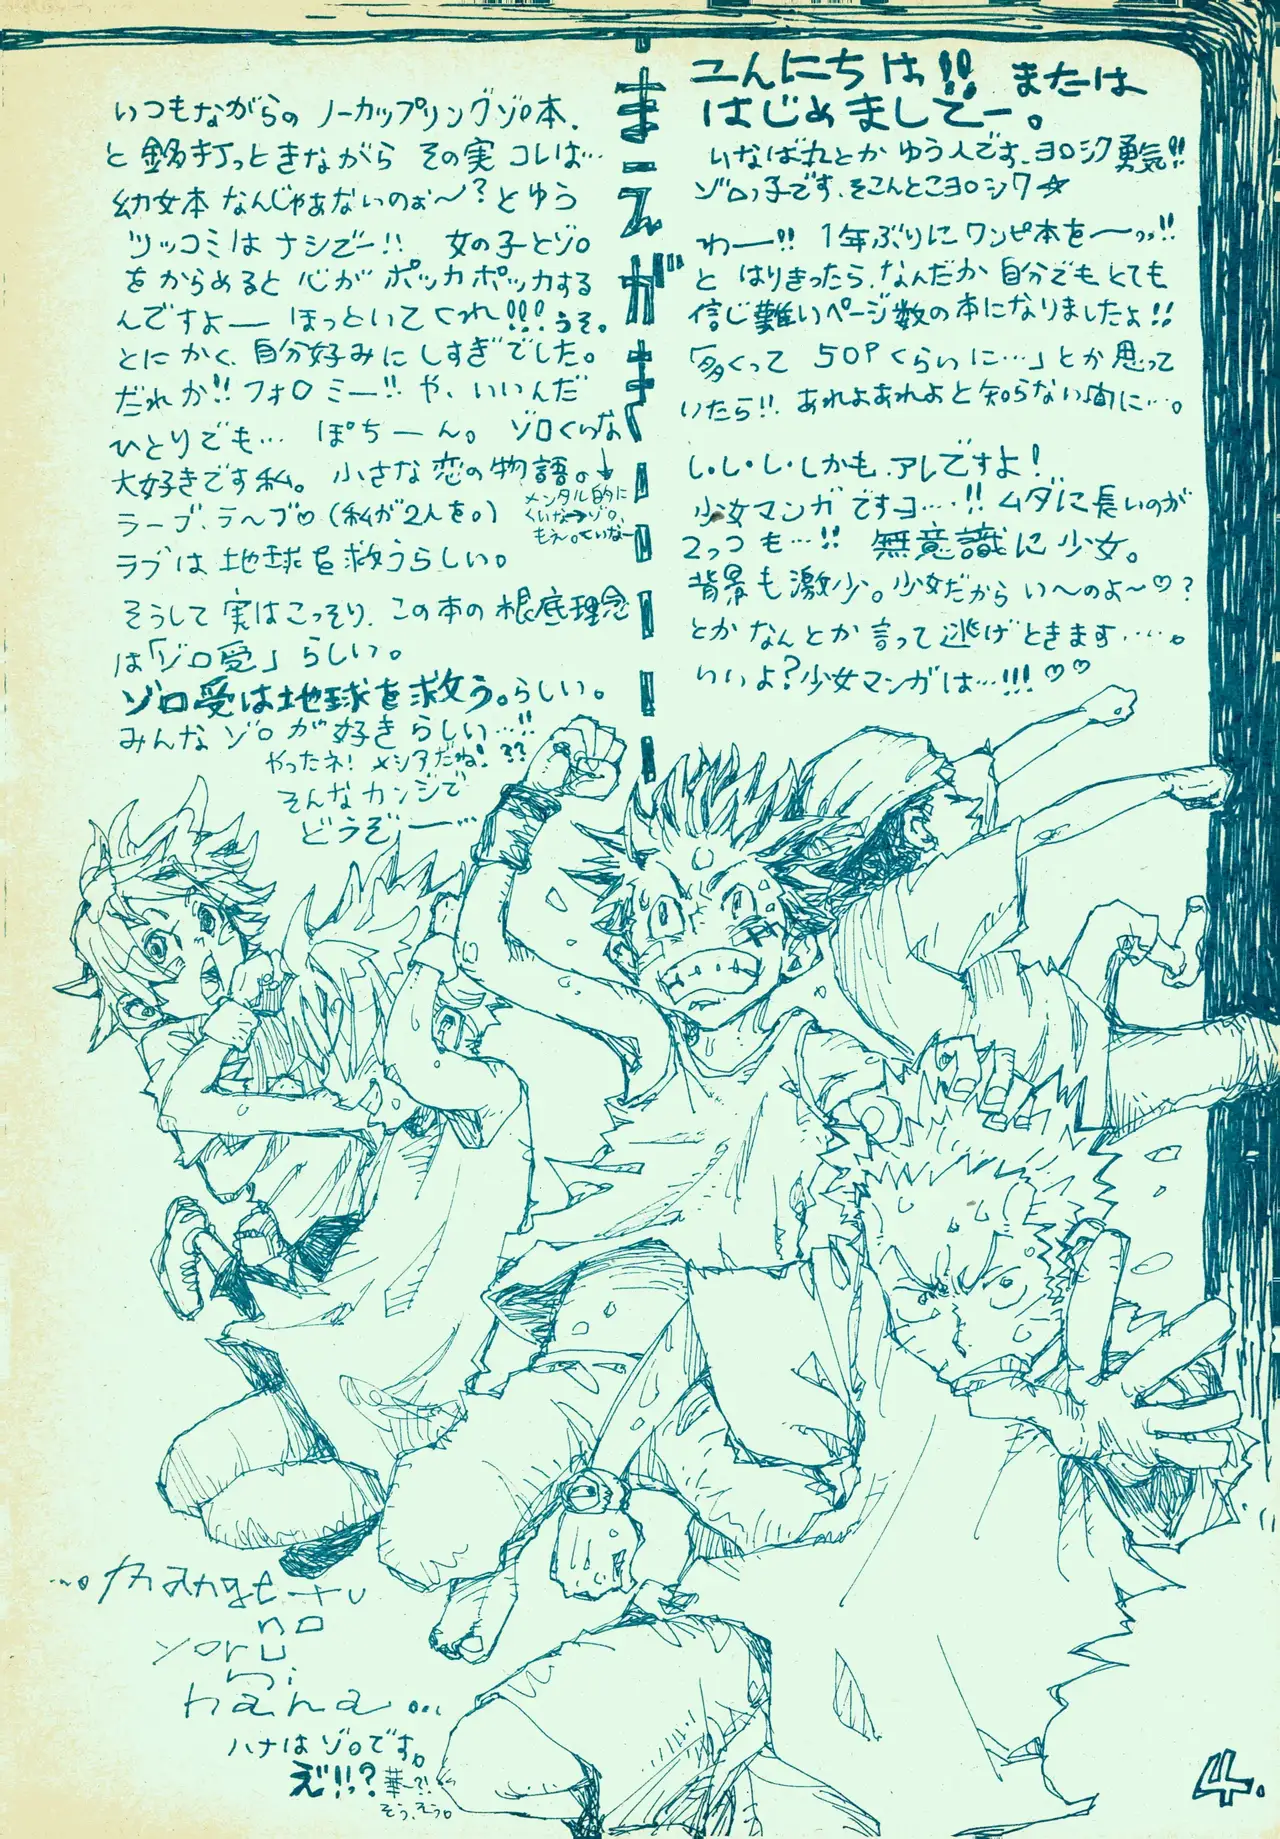 まーえがきーーーー
こんにちは!! または
はじめましてー。
いなばれとかゆう人です、ヨロシク勇気!!
ゾロっ子です、そこんとこヨロシク☆
わー!! 1年ぶりにワンピ本をーっっ!!
と はりきったら、なんだか自分でもとても
信じ難いページ数の本になりましたよ!!
「多くって 50Pくらいに…」とか思って
いたら!! あれよあれよと知らない間に…。
し・し・し・しかも、アレですよ!
少女マンガですヨ…!! ムダに長いのが
2っつも…!! 無意識に少女。
背景も激少。少女だからい〜のよ〜♡?
とかなんとか言って逃げときます…‥。
いいよ?少女マンガは…!!!♡♡
いつもながらの ノーカップリングゾロ本、
と 銘打っときながら その実 コレは…
幼女本 なんじゃあないのぉ〜? とゆう
ツッコミはナシでー!! 女の子とゾロ
をからめると 心が ポッカポッカする
んですよー ほっといてくれ!!! うそ。
とにかく、自分好みにしすぎでした。
だれか!! フォロミー!! や、いいんだ
ひとりでも… ぽちーん。 ゾロくいな
大好きです私。 小さな恋の物語。↓
メンタル的に
くいな→ゾロ。
もえ。くいなー
ラーブ、ラ〜ブ♡(私が2人を。)
ラブは地球を救うらしい。
そうして実はこっそり、この本の根底理念
は「ゾロ受」らしい。
ゾロ受は地球を救う。らしい。
みんなゾロが好きらしい…!!
やったネ! メシアだね! ??
そんなカンジで
どうぞー…
...。mangetu
no
yoru
ni
hana...
ハナはゾロです。
え"!!っ? 華〜?!
そう、そう。
4.